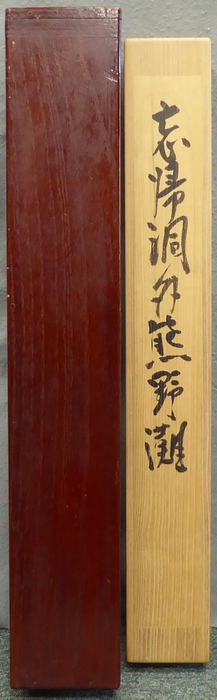 忘帰洞外熊野灘